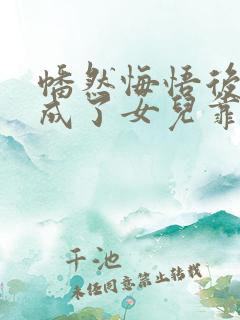 幡然悔悟後
成了女兒靠
千池
未經同意禁止轉載